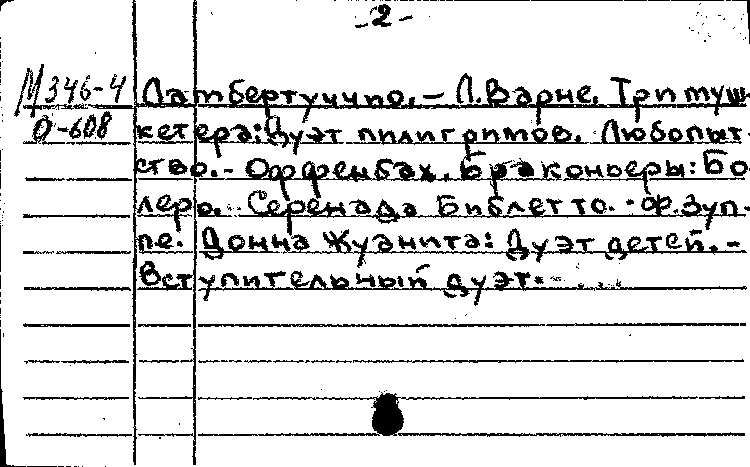 -2-
М346-4 Ламбертуччио. – Л.Варне. Три муш-
О-608 кетера: Дуэт пилигримов. Любопыт-
ство. - Оффенбах. Браконьеры: Бо-
леро. Серенада Библетто. - Ф.Зуп-
пе. Донна Жуанита: Дуэт детей. -
Вступительный дуэт.